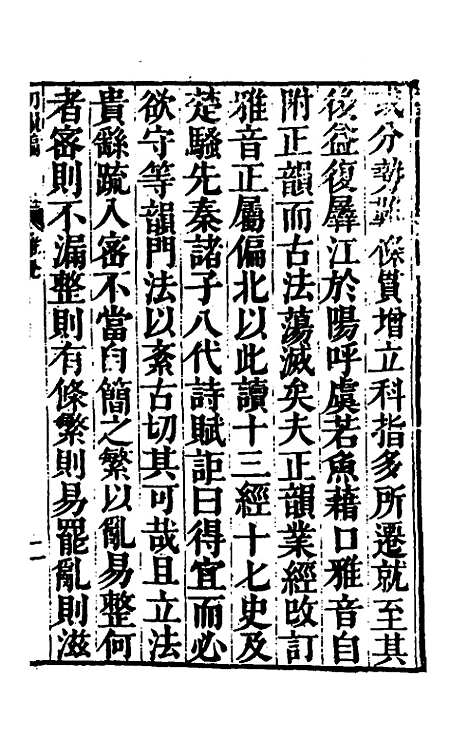 分辨難條貫增立科指多所遷就至其
後益復羼江於陽呼虞若魚藉口雅音自
附正韻而古法蕩滅矣夫正韻業經改訂
雅音正屬偏北以此讀十三經十七史及
楚騷先秦諸子八代詩賦詎曰得宜而必
欲守等韻門法以紊古切其可哉且立法
貴繇疏入密不當自簡之繁以亂易整何
者密則不漏整則有條繁則易罷亂則滋
二